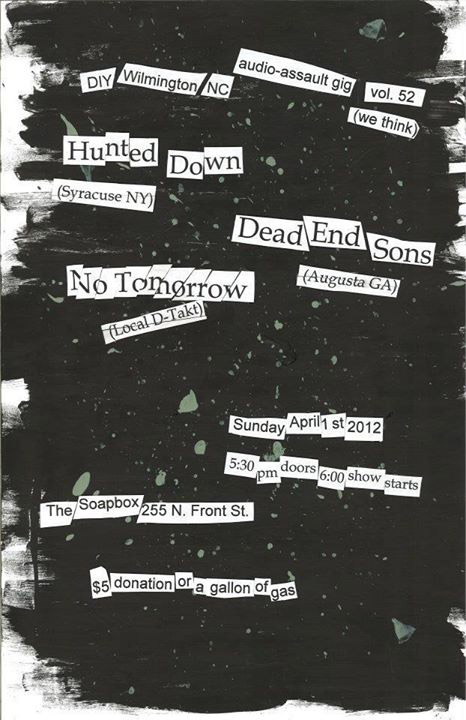 DIY Wilmington NC
audio-assault gig vol. 52
(we think)
Hunted Down
(Syracuse NY)
Dead End Sons
(Augusta GA)
No Tomorrow
(Local D-Takt)
Sunday April 1 st 2012
5:30 pm doors 6:00 show starts
The Soapbox 255 N. Front St.
$5 donation or a gallon of gas